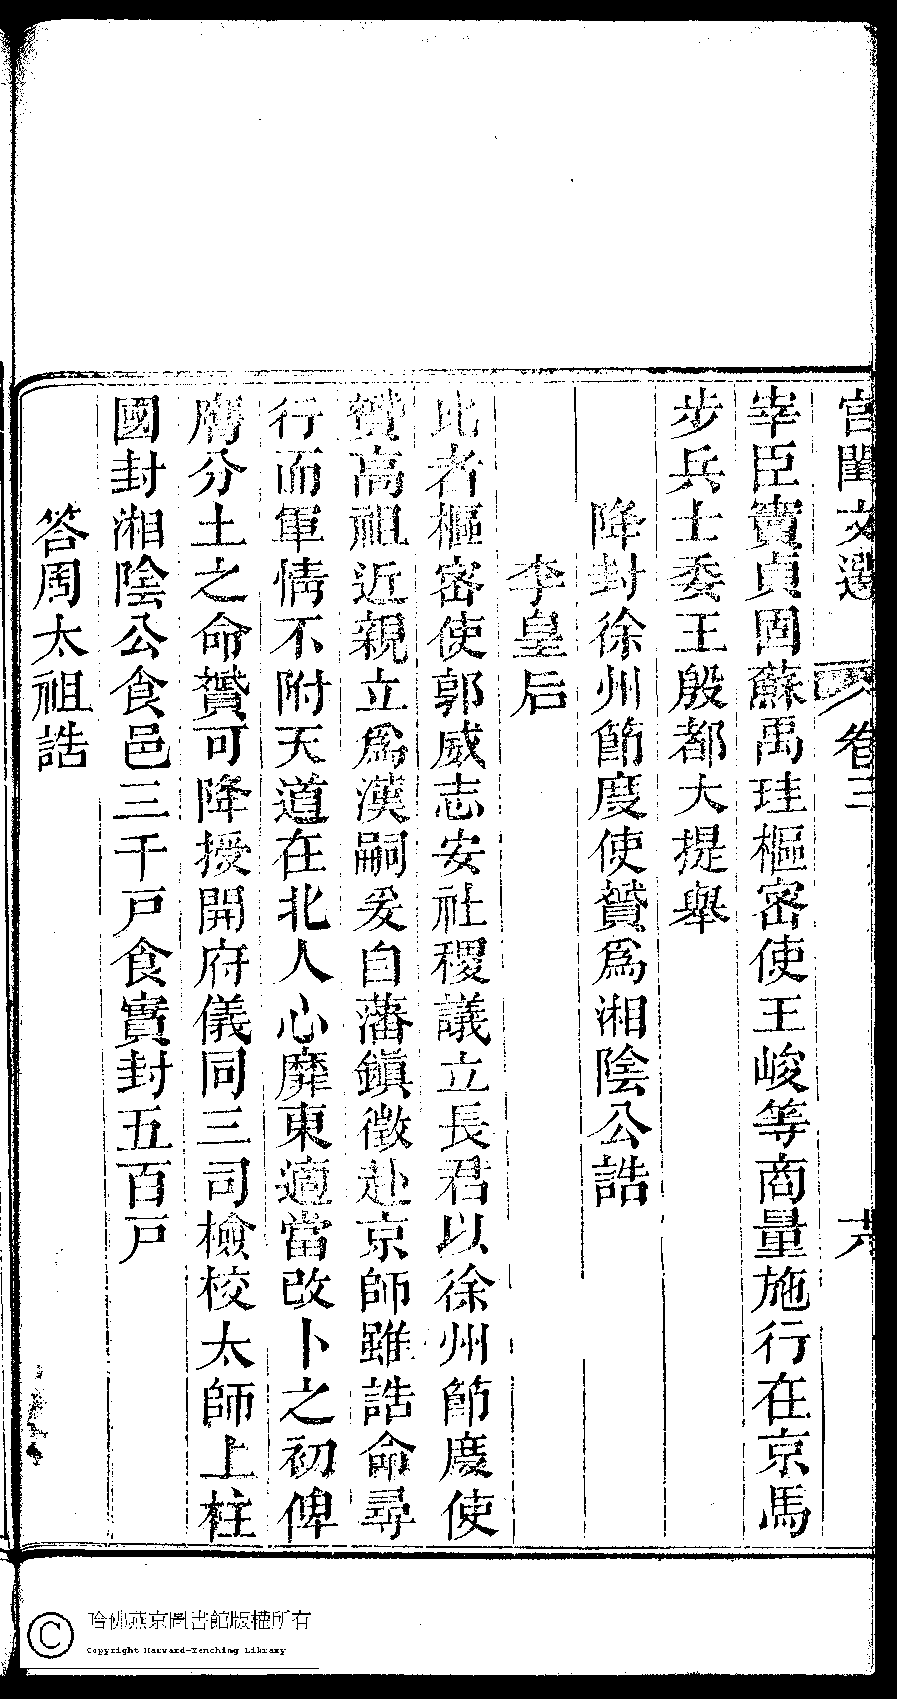 宮閨文選 卷三 十六
宰臣竇貞固蘇禹珪樞密使王峻等商量施行在京馬
步兵士委王殷都大提舉
降封徐州節度使贇爲湘陰公誥
李皇后
比者樞密使郭威志安社稷議立長君以徐州節度使
贇高祖近親立爲漢嗣爰自藩鎮徵赴京師雖誥命尋
行而軍情不附天道在北人心靡東適當改卜之初俾
膺分土之命贇可降授開府儀同三司檢校太師上柱
國封湘陰公食邑三千戸食實封五百戸
答周太祖誥
哈佛燕京圖書館版權所有
Copyright Harvard-Yenching Library